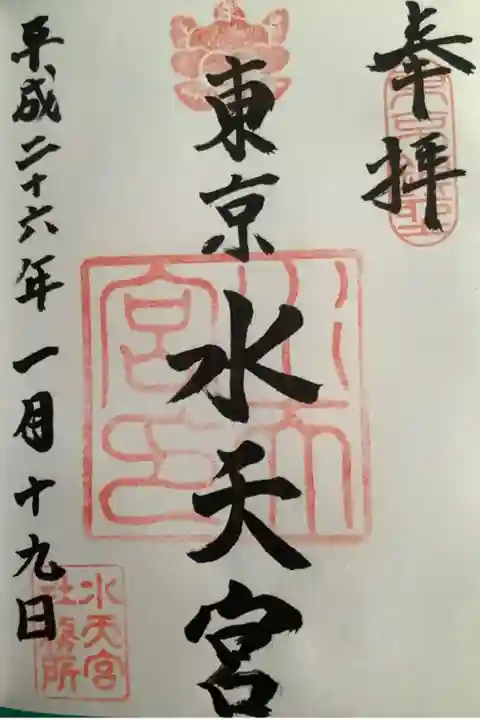 奉拝
東京水天宮
平成二十六年一月十九日
水天宮
社務所
水天
宮印